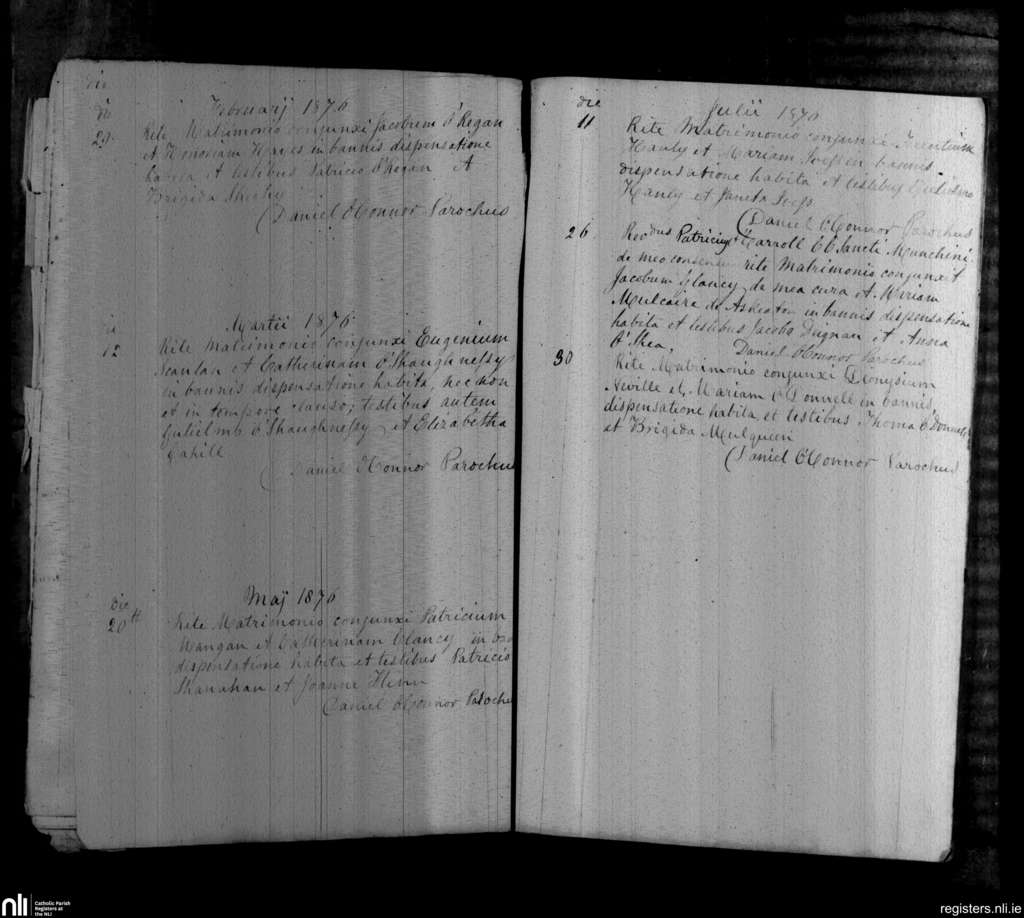 die
die
Februarij 1876
29. Rite Matrimonio conjunxi Jacobum O'Regan
et Honoriam Hayes in bannis dispensatione
habita et testibus Patricio O'Regan et
Brigida Sheehy
(Daniel O'Connor Parochus
Martii 1876
12 Rite Matrimonio conjunxi Eugenium
Scanlan et Catherinam O'Shaughnessy
in bannis dispensatione habita, nec non
et in tempore clauso; testibus autem
Gulielmo O'Shaughnessy et Elizabetha
Cahill
Daniel O'Connor Parochus
Maij 1876
die
20th Rite Matrimonio conjunxi Patricium
Mangan et Catherinam Clancy in ban
dispensatione habita et testibus Patricio
Shanahan et Joanne
(Daniel O'Connor Parochu
die
Julii 1876
11 Rite Matrimonio conjunxi
Hanly et Mariam in bannis
dispensatione habita et testibus
Hanly et
(Daniel O'Connor Parochus
26 Revdus Patricius Carroll CC Sancti Munchini
de meo consensu rite Matrimonio conjunxit
Jacobum Clancy de mea cura et Miriam
Mulcaire de Askeaton in bannis dispensatione
habita et testibus Jacobo Duignan et Anna
O'Shea. Daniel O'Connor Parochus
30 Rite Matrimonio conjunxi Dionysium
Neville et Mariam O'Donnell in bannis
dispensatione habita et testibus Thoma O'Donnell
et Brigida Mulqueen
(Daniel O'Connor Parochus
nli
Catholic Parish
Registers at
the NLI
registers.nli.ie